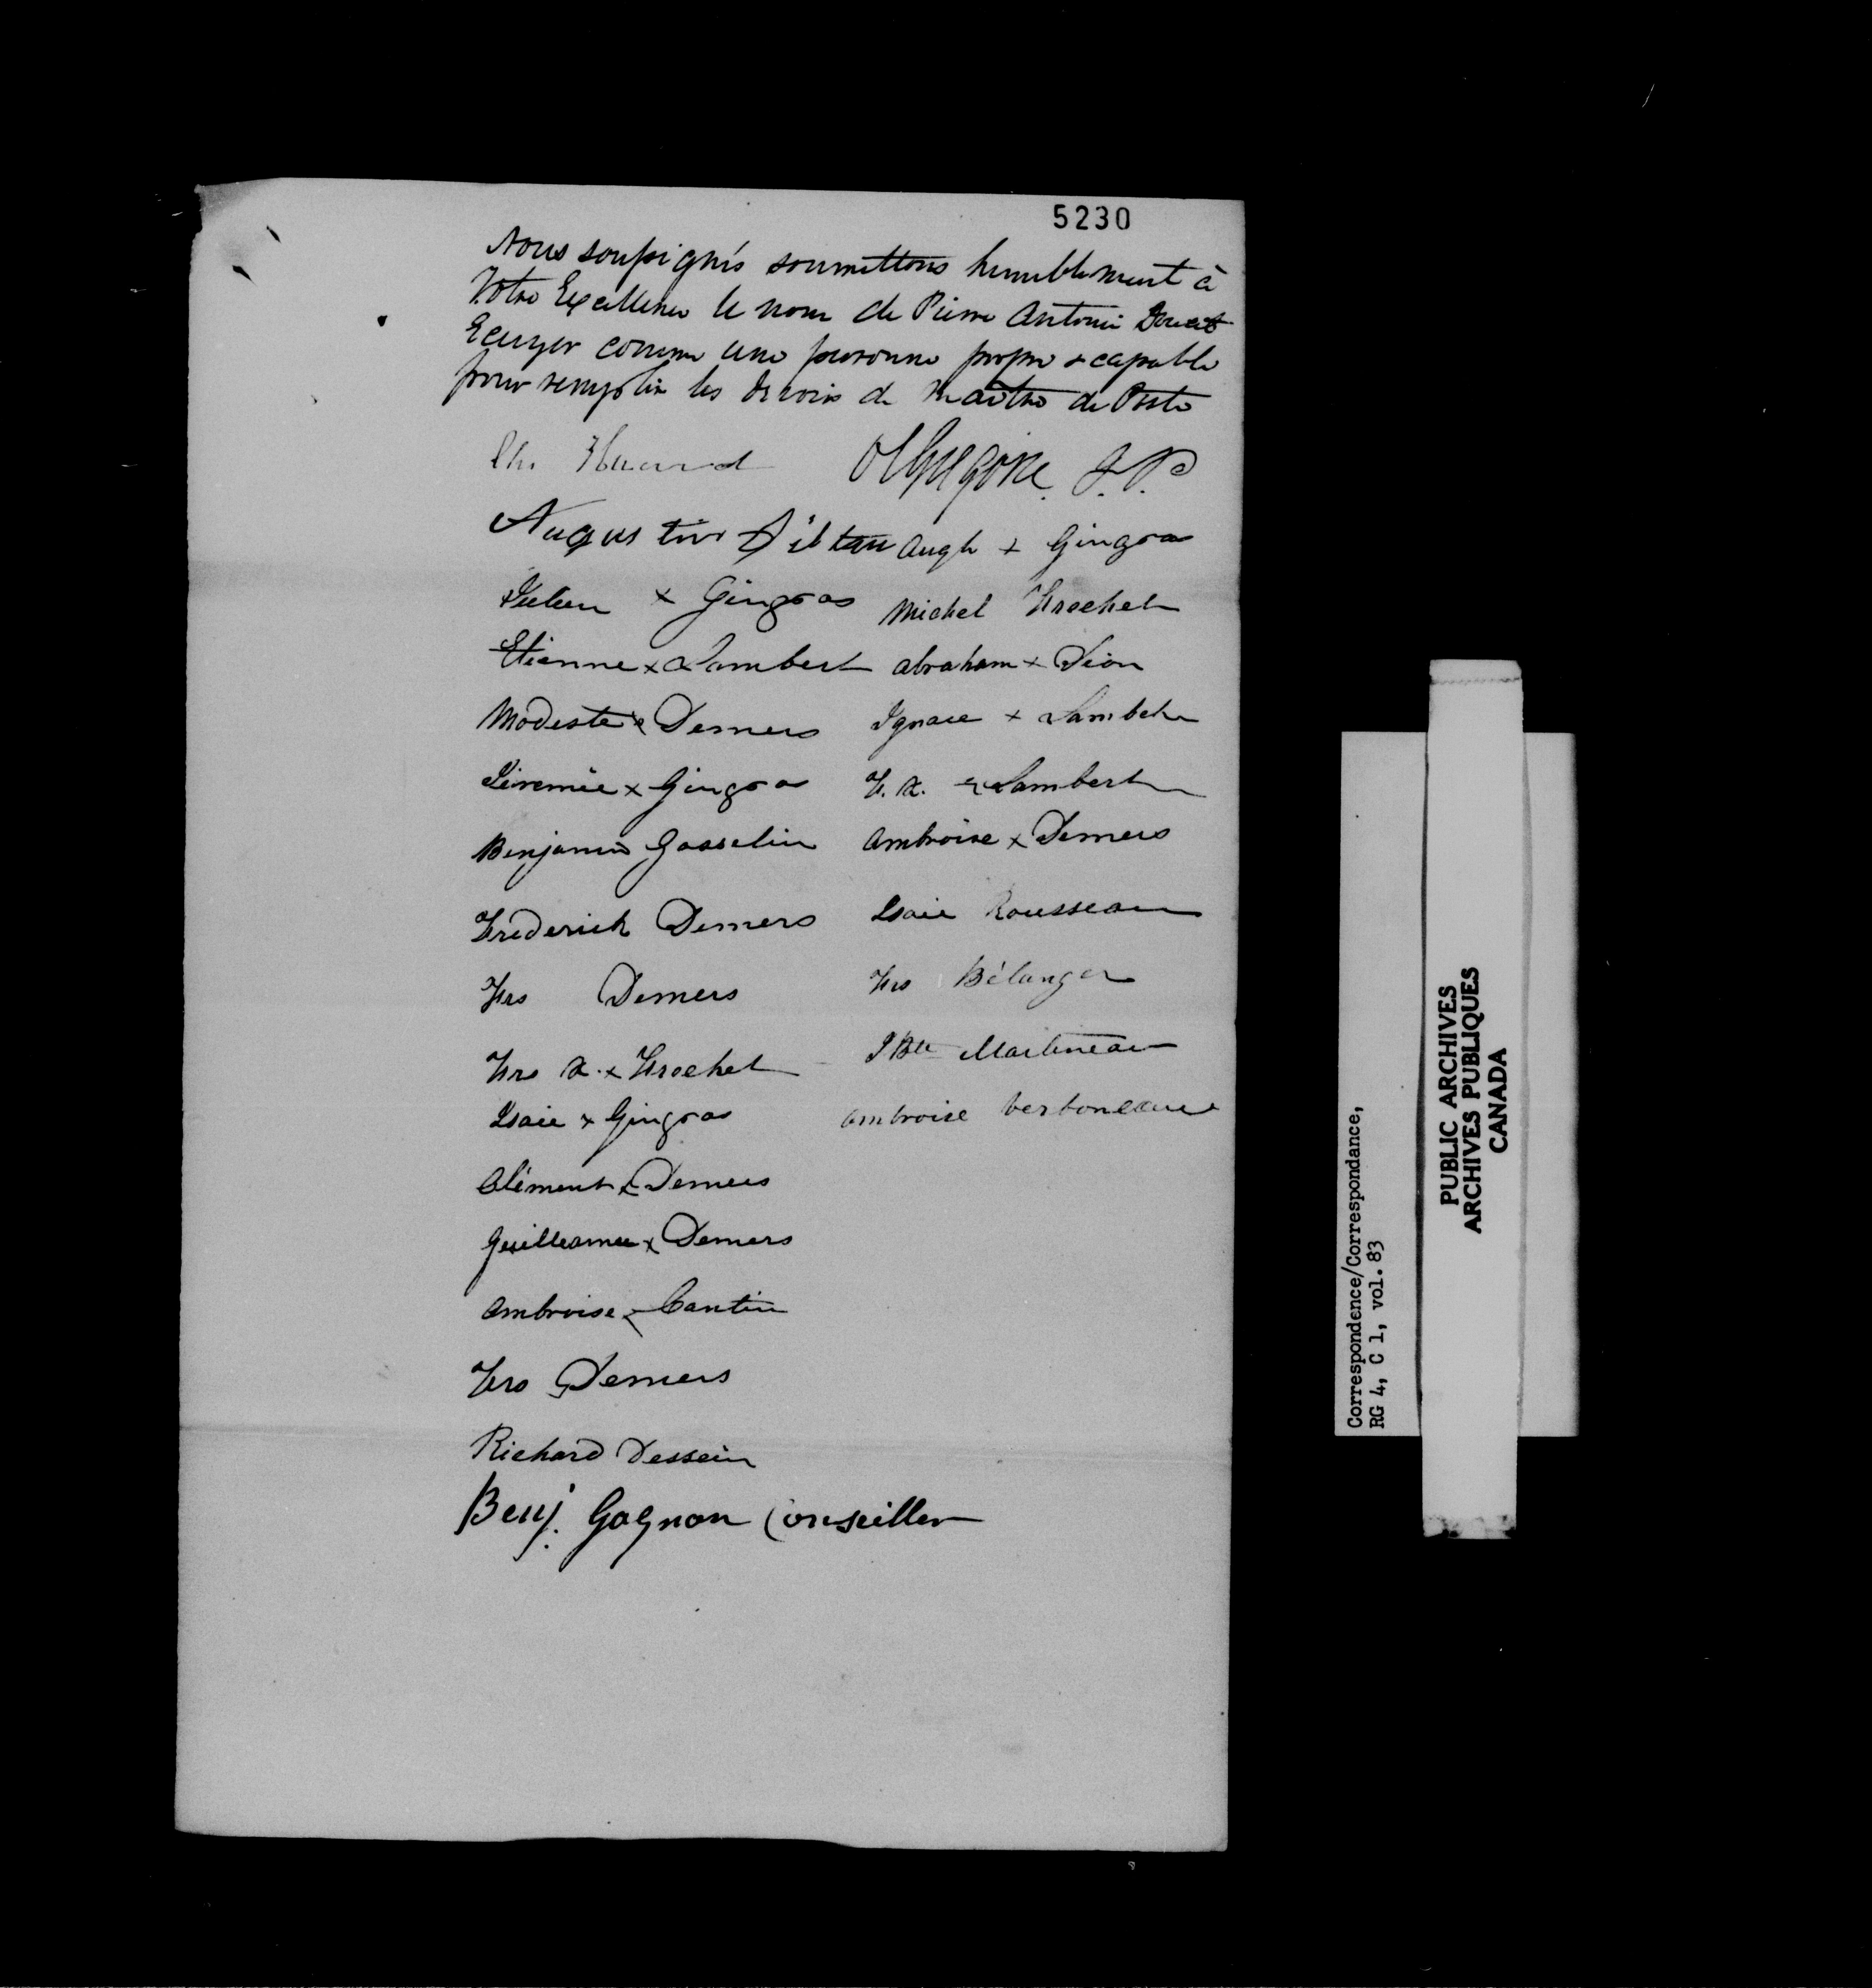 5230
Nous soussignés soumettons humblement à
Votre Excellence le nom de Pierre Antoine Doucet
Ecuyer comme une personne propre & capable
pour remplir les devoirs de Maître de Poste
Chs Huard J.P.
Augustin Augte + Gingras
Julien x Gingras Michel Frechet
Etienne x Lambert Abraham x Dion
Modeste x Demers Ignace + Lambert
Jérémie x Gingras F. X. x Lambert
Benjamin Gosselin Ambroise x Demers
Frederick Demers Isaie Rousseau
Frs Demers Frs Bélanger
Frs X. x Frechet J Bte Martineau
Isaie x Gingras ambroise
Clément x Demers
Guilleaume x Demers
Ambroise x Cantin
Frs Demers
Richard Dessein
Benj. Gagnon Conseiller
Correspondence/Correspondance,
RG 4, C 1, vol. 83
PUBLIC ARCHIVES
ARCHIVES PUBLIQUES
CANADA